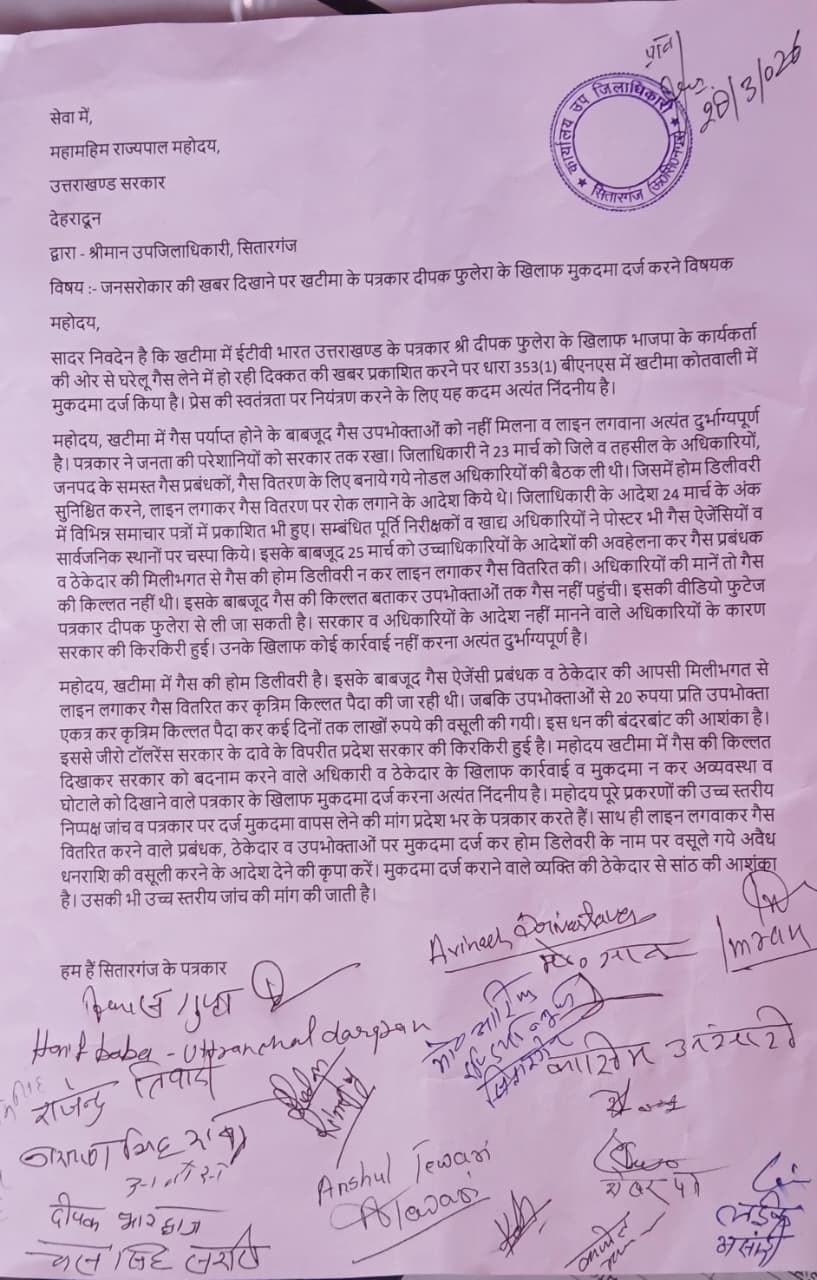 प्राप्त
28/3/026
कार्यालय उप जिलाधिकारी
सितारगंज
सेवा में,
महामहिम राज्यपाल महोदय,
उत्तराखण्ड सरकार
देहरादून
द्वारा - श्रीमान उपजिलाधिकारी, सितारगंज
विषय :- जनसरोकार की खबर दिखाने पर खटीमा के पत्रकार दीपक फुलेरा के खिलाफ मुकदमा दर्ज करने विषयक
महोदय,
सादर निवदेन है कि खटीमा में ईटीवी भारत उत्तराखण्ड के पत्रकार श्री दीपक फुलेरा के खिलाफ भाजपा के कार्यकर्ता
की ओर से घरेलू गैस लेने में हो रही दिक्कत की खबर प्रकाशित करने पर धारा 353(1) बीएनएस में खटीमा कोतवाली में
मुकदमा दर्ज किया है। प्रेस की स्वतंत्रता पर नियंत्रण करने के लिए यह कदम अत्यंत निंदनीय है।
महोदय, खटीमा में गैस पर्याप्त होने के बाबजूद गैस उपभोक्ताओं को नहीं मिलना व लाइन लगवाना अत्यंत दुर्भाग्यपूर्ण
है। पत्रकार ने जनता की परेशानियों को सरकार तक रखा। जिलाधिकारी ने 23 मार्च को जिले व तहसील के अधिकारियों,
जनपद के समस्त गैस प्रबंधकों, गैस वितरण के लिए बनाये गये नोडल अधिकारियों की बैठक ली थी। जिसमें होम डिलीवरी
सुनिश्चित करने, लाइन लगाकर गैस वितरण पर रोक लगाने के आदेश किये थे। जिलाधिकारी के आदेश 24 मार्च के अंक
में विभिन्न समाचार पत्रों में प्रकाशित भी हुए। सम्बंधित पूर्ति निरीक्षकों व खाद्य अधिकारियों ने पोस्टर भी गैस ऐजेंसियों व
सार्वजनिक स्थानों पर चस्पा किये। इसके बाबजूद 25 मार्च को उच्चाधिकारियों के आदेशों की अवहेलना कर गैस प्रबंधक
व ठेकेदार की मिलीभगत से गैस की होम डिलीवरी न कर लाइन लगाकर गैस वितरित की। अधिकारियों की मानें तो गैस
की किल्लत नहीं थी। इसके बाबजूद गैस की किल्लत बताकर उपभोक्ताओं तक गैस नहीं पहुंची। इसकी वीडियो फुटेज
पत्रकार दीपक फुलेरा से ली जा सकती है। सरकार व अधिकारियों के आदेश नहीं मानने वाले अधिकारियों के कारण
सरकार की किरकिरी हुई। उनके खिलाफ कोई कार्रवाई नहीं करना अत्यंत दुर्भाग्यपूर्ण है।
महोदय, खटीमा में गैस की होम डिलीवरी है। इसके बाबजूद गैस ऐजेंसी प्रबंधक व ठेकेदार की आपसी मिलीभगत से
लाइन लगाकर गैस वितरित कर कृत्रिम किल्लत पैदा की जा रही थी। जबकि उपभोक्ताओं से 20 रुपया प्रति उपभोक्ता
एकत्र कर कृत्रिम किल्लत पैदा कर कई दिनों तक लाखों रुपये की वसूली की गयी। इस धन की बंदरबांट की आशंका है।
इससे जीरो टॉलरेंस सरकार के दावे के विपरीत प्रदेश सरकार की किरकिरी हुई है। महोदय खटीमा में गैस की किल्लत
दिखाकर सरकार को बदनाम करने वाले अधिकारी व ठेकेदार के खिलाफ कार्रवाई व मुकदमा न कर अव्यवस्था व
घोटाले को दिखाने वाले पत्रकार के खिलाफ मुकदमा दर्ज करना अत्यंत निंदनीय है। महोदय पूरे प्रकरणों की उच्च स्तरीय
निष्पक्ष जांच व पत्रकार पर दर्ज मुकदमा वापस लेने की मांग प्रदेश भर के पत्रकार करते हैं। साथ ही लाइन लगवाकर गैस
वितरित करने वाले प्रबंधक, ठेकेदार व उपभोक्ताओं पर मुकदमा दर्ज कर होम डिलेवरी के नाम पर वसूले गये अवैध
धनराशि की वसूली करने के आदेश देने की कृपा करें। मुकदमा दर्ज कराने वाले व्यक्ति की ठेकेदार से सांठ की आशंका
है। उसकी भी उच्च स्तरीय जांच की मांग की जाती है।
Avineesh Srivastava
Imran
हम हैं सितारगंज के पत्रकार
गुप्ता
Hanif baba - Uttranchal darpan
राजेन्द्र तिवारी
Anshul Tewari
ATewari
दीपक भारद्वाज